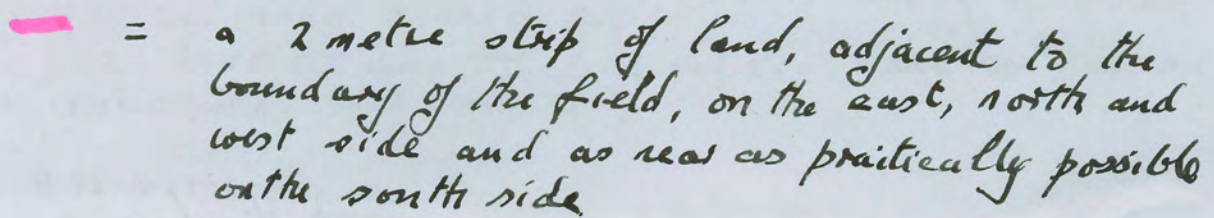 = a 2 metre strip of land, adjacent to the
boundary of the field, on the east, north and
west side and as near as practically possible
on the south side